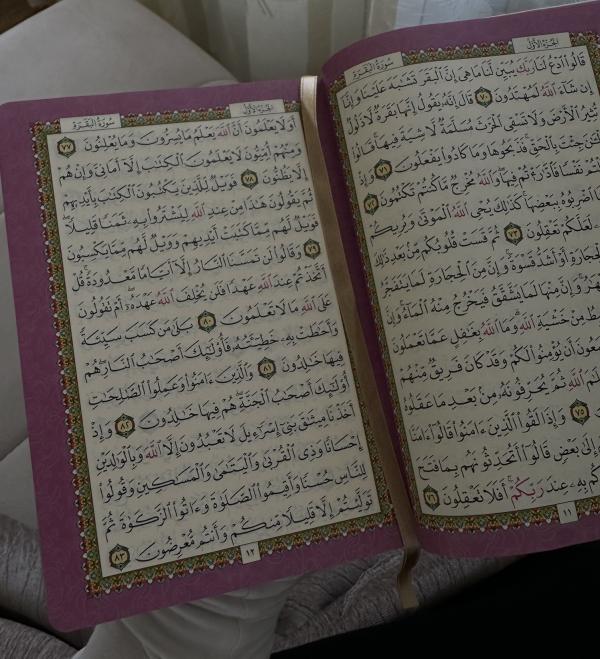 الجزء الأول
سورة البقرة
قَالُوا۟ ٱدْعُ لَنَا رَبَّكَ يُبَيِّن لَّنَا مَا هِىَ إِنَّ ٱلْبَقَرَ تَشَٰبَهَ عَلَيْنَا وَإِنَّآ
إِن شَآءَ ٱللَّهُ لَمُهْتَدُونَ ٧٠ قَالَ إِنَّهُۥ يَقُولُ إِنَّهَا بَقَرَةٌ لَّا ذَلُولٌ
تُثِيرُ ٱلْأَرْضَ وَلَا تَسْقِى ٱلْحَرْثَ مُسَلَّمَةٌ لَّا شِيَةَ فِيهَا ۚ قَالُوا۟
جِئْتَ بِٱلْحَقِّ ۚ فَذَبَحُوهَا وَمَا كَادُوا۟ يَفْعَلُونَ ٧١ وَإِذْ
نَفْسًا فَٱدَّٰرَٰٔتُمْ فِيهَا ۖ وَٱللَّهُ مُخْرِجٌ مَّا كُنتُمْ تَكْتُمُونَ ٧٢
ٱضْرِبُوهُ بِبَعْضِهَا ۚ كَذَٰلِكَ يُحْىِ ٱللَّهُ ٱلْمَوْتَىٰ وَيُرِيكُمْ
لَعَلَّكُمْ تَعْقِلُونَ ٧٣ ثُمَّ قَسَتْ قُلُوبُكُم مِّنۢ بَعْدِ ذَٰلِكَ
أَوْ أَشَدُّ قَسْوَةً ۚ وَإِنَّ مِنَ ٱلْحِجَارَةِ لَمَا يَتَفَجَّرُ
وَإِنَّ مِنْهَا لَمَا يَشَّقَّقُ فَيَخْرُجُ مِنْهُ ٱلْمَآءُ ۚ وَإِنَّ
مِنْ خَشْيَةِ ٱللَّهِ ۗ وَمَا ٱللَّهُ بِغَٰفِلٍ عَمَّا تَعْمَلُونَ
أَن يُؤْمِنُوا۟ لَكُمْ وَقَدْ كَانَ فَرِيقٌ مِّنْهُمْ
ٱللَّهِ ثُمَّ يُحَرِّفُونَهُۥ مِنۢ بَعْدِ مَا عَقَلُوهُ
٧٥ وَإِذَا لَقُوا۟ ٱلَّذِينَ ءَامَنُوا۟ قَالُوٓا۟ ءَامَنَّا
إِلَىٰ بَعْضٍ قَالُوٓا۟ أَتُحَدِّثُونَهُم بِمَا فَتَحَ
بِهِۦ عِندَ رَبِّكُمْ ۚ أَفَلَا تَعْقِلُونَ ٧٦
١١
الجزء الأول
سورة البقرة
أَوَلَا يَعْلَمُونَ أَنَّ ٱللَّهَ يَعْلَمُ مَا يُسِرُّونَ وَمَا يُعْلِنُونَ ٧٧
وَمِنْهُمْ أُمِّيُّونَ لَا يَعْلَمُونَ ٱلْكِتَٰبَ إِلَّآ أَمَانِىَّ وَإِنْ هُمْ
إِلَّا يَظُنُّونَ ٧٨ فَوَيْلٌ لِّلَّذِينَ يَكْتُبُونَ ٱلْكِتَٰبَ بِأَيْدِيهِمْ
ثُمَّ يَقُولُونَ هَٰذَا مِنْ عِندِ ٱللَّهِ لِيَشْتَرُوا۟ بِهِۦ ثَمَنًا قَلِيلًا ۖ
فَوَيْلٌ لَّهُم مِّمَّا كَتَبَتْ أَيْدِيهِمْ وَوَيْلٌ لَّهُم مِّمَّا يَكْسِبُونَ
٧٩ وَقَالُوا۟ لَن تَمَسَّنَا ٱلنَّارُ إِلَّآ أَيَّامًا مَّعْدُودَةً ۚ قُلْ
أَتَّخَذْتُمْ عِندَ ٱللَّهِ عَهْدًا فَلَن يُخْلِفَ ٱللَّهُ عَهْدَهُۥٓ ۖ أَمْ تَقُولُونَ
عَلَى ٱللَّهِ مَا لَا تَعْلَمُونَ ٨٠ بَلَىٰ مَن كَسَبَ سَيِّئَةً
وَأَحَٰطَتْ بِهِۦ خَطِيٓـَٔتُهُۥ فَأُو۟لَٰٓئِكَ أَصْحَٰبُ ٱلنَّارِ ۖ هُمْ
فِيهَا خَٰلِدُونَ ٨١ وَٱلَّذِينَ ءَامَنُوا۟ وَعَمِلُوا۟ ٱلصَّٰلِحَٰتِ
أُو۟لَٰٓئِكَ أَصْحَٰبُ ٱلْجَنَّةِ ۖ هُمْ فِيهَا خَٰلِدُونَ ٨٢ وَإِذْ
أَخَذْنَا مِيثَٰقَ بَنِىٓ إِسْرَٰٓءِيلَ لَا تَعْبُدُونَ إِلَّا ٱللَّهَ وَبِٱلْوَٰلِدَيْنِ
إِحْسَانًا وَذِى ٱلْقُرْبَىٰ وَٱلْيَتَٰمَىٰ وَٱلْمَسَٰكِينِ وَقُولُوا۟
لِلنَّاسِ حُسْنًا وَأَقِيمُوا۟ ٱلصَّلَوٰةَ وَءَاتُوا۟ ٱلزَّكَوٰةَ ثُمَّ
تَوَلَّيْتُمْ إِلَّا قَلِيلًا مِّنكُمْ وَأَنتُم مُّعْرِضُونَ ٨٣
١٢